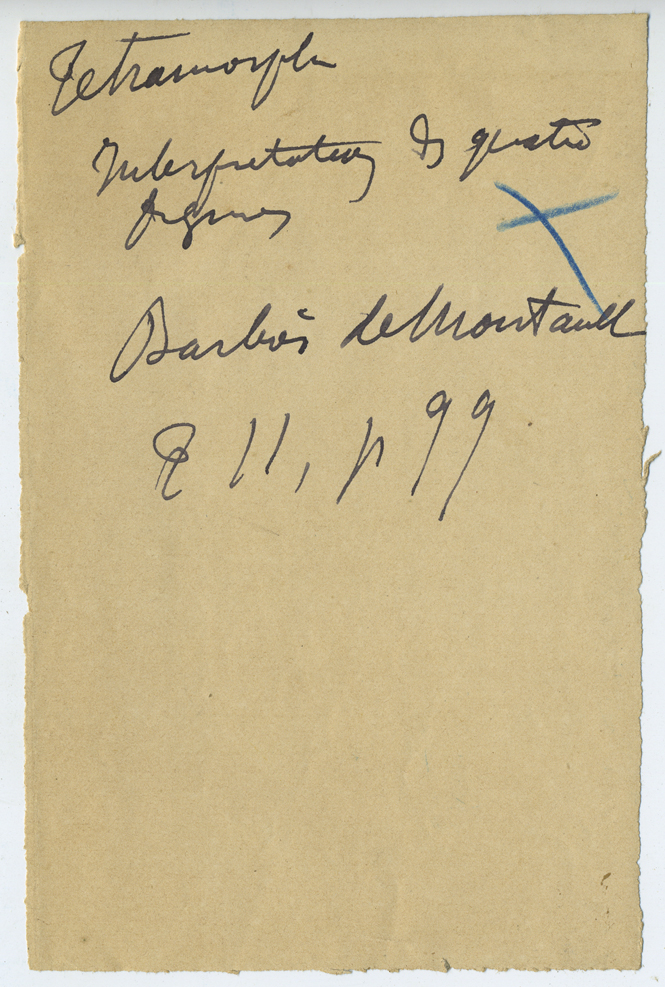 Tetramorph
Interpretation des quatre
figures
Barbier de Montault
T II, p 99